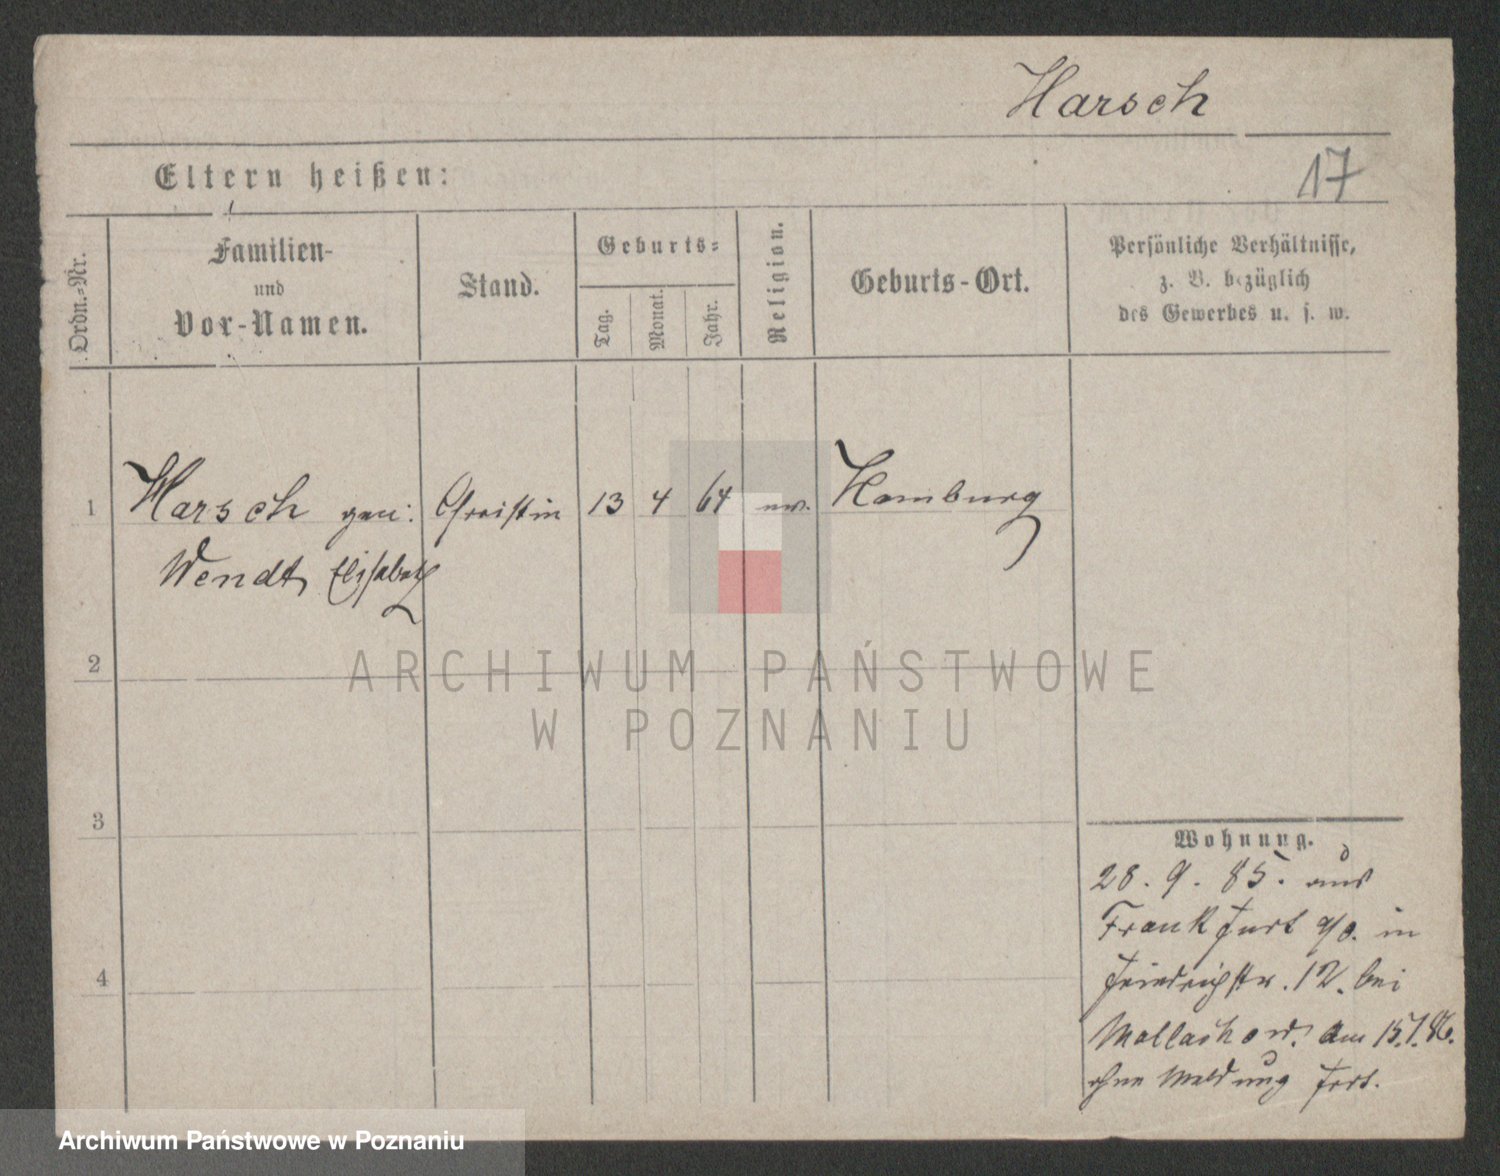 Harsch
17
Eltern heißen:
Ordn.-Nr.
Familien-
und
Vor-Namen.
Stand.
Geburts-
Tag.
Monat.
Jahr.
Religion.
Geburts-Ort.
Persönliche Verhältnisse,
z. B. bezüglich
des Gewerbes u. s. w.
1 Harsch gen: 13 4 64 ev. Hamburg
Wendt, Elisabeth
2
3
4
Wohnung.
28. 9. 85. aus
Frankfurt a/O. in
Friedrichstr. 12. bei
am 15.7.86.
ohne Meldung fort.
ARCHIWUM PAŃSTWOWE
W POZNANIU
Archiwum Państwowe w Poznaniu